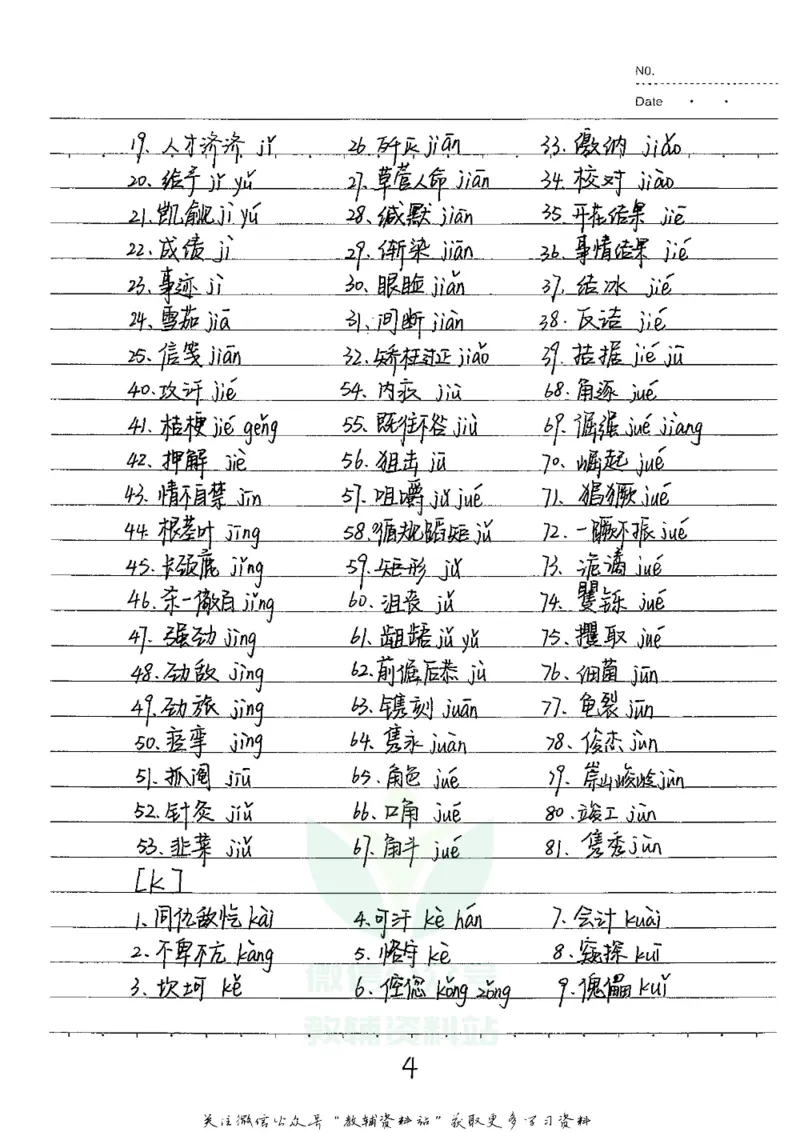 NO.
Date
19、人才济济 jǐ 26、歼灭 jiān 33、缴纳 jiǎo
20、给予 jǐ yǔ 27、草菅人命 jiān 34、校对 jiào
21、觊觎 jì yú 28、缄默 jiān 35、开花结果 jiē
22、成绩 jì 29、渐染 jiān 36、事情结果 jié
23、事迹 jì 30、眼睑 jiǎn 37、结冰 jié
24、雪茄 jiā 31、间断 jiàn 38、反诘 jié
25、信笺 jiān 32、矫枉过正 jiǎo 39、拮据 jié jū
40、攻讦 jié 54、内疚 jiù 68、角逐 jué
41、桔梗 jié gěng 55、既往不咎 jiù 69、倔强 jué jiàng
42、押解 jiè 56、狙击 jū 70、崛起 jué
43、情不自禁 jīn 57、咀嚼 jǔ jué 71、猖獗 jué
44、根茎叶 jīng 58、循规蹈矩 jǔ 72、一蹶不振 jué
45、长颈鹿 jǐng 59、矩形 jǔ 73、诡谲 jué
46、杀一儆百 jǐng 60、沮丧 jǔ 74、矍铄 jué
47、强劲 jìng 61、龃龉 jǔ yǔ 75、攫取 jué
48、劲敌 jìng 62、前倨后恭 jù 76、细菌 jūn
49、劲旅 jìng 63、镌刻 juān 77、龟裂 jūn
50、痉挛 jìng 64、隽永 juàn 78、俊杰 jùn
51、抓阄 jiū 65、角色 jué 79、崇山峻岭 jùn
52、针灸 jiǔ 66、口角 jué 80、竣工 jùn
53、韭菜 jiǔ 67、角斗 jué 81、隽秀 jùn
[K]
1、同仇敌忾 kài 4、可汗 kè hán 7、会计 kuài
2、不卑不亢 kàng 5、恪守 kè 8、窥探 kuī
3、坎坷 kě 6、倥偬 kǒng zǒng 9、傀儡 kuǐ
微信公众号
教辅资料站
4
关注微信公众号"教辅资料站"获取更多学习资料